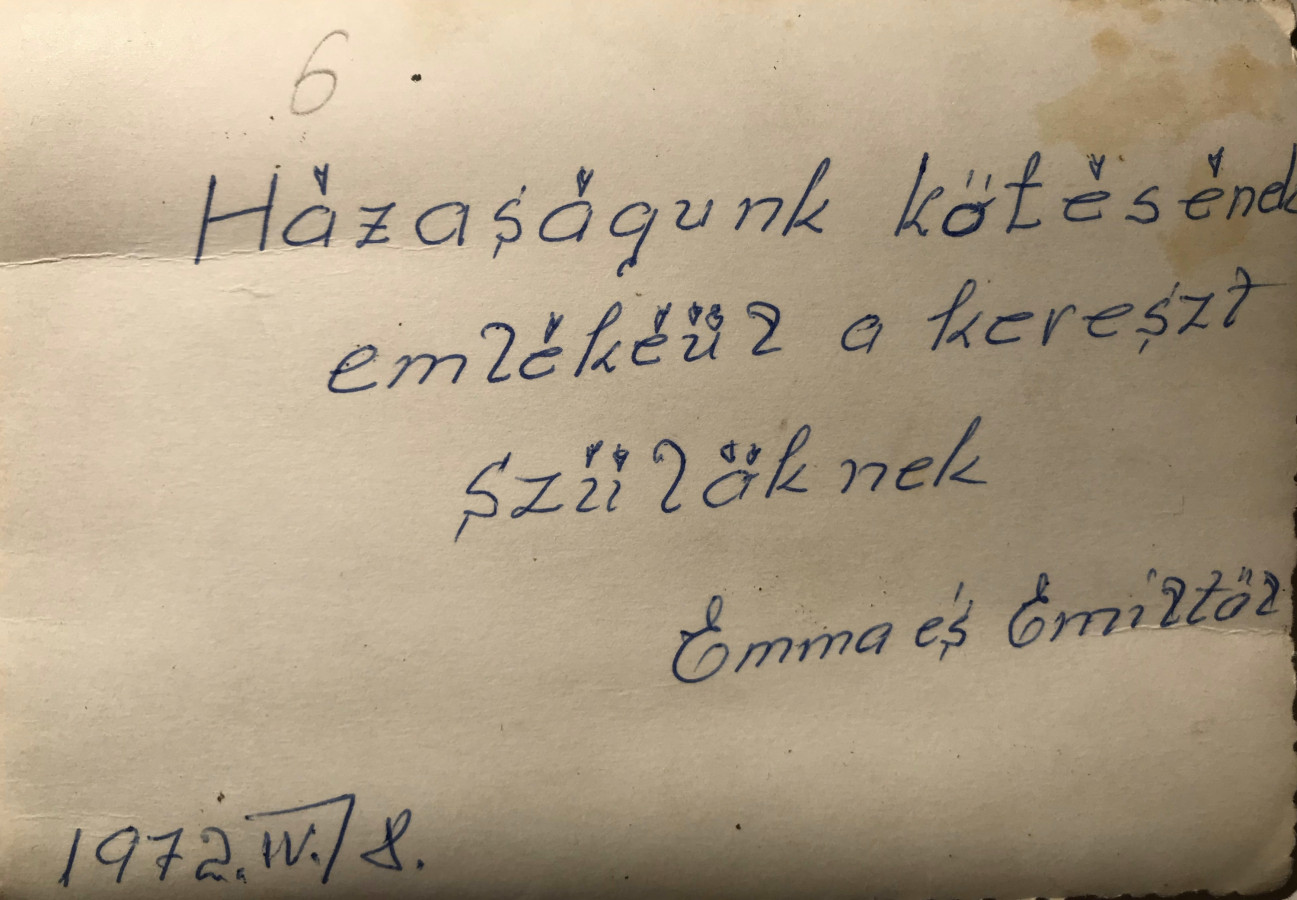 6
Házaságunk kötésének
emlékéül a kereszt
szülöknek
Emma és Emiltöl
1972. IV./8.